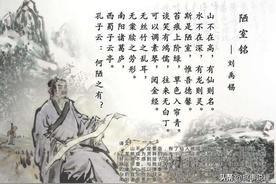 陋室铭
—刘禹锡
山不在高，有仙则名。
水不在深，有龙则灵。
斯是陋室，惟吾德馨。
苔痕上阶绿，草色入帘青。
谈笑有鸿儒，往来无白丁。
可以调素琴，阅金经。
无丝竹之乱耳，
无案牍之劳形。
南阳诸葛庐，
西蜀子云亭。
孔子云：何陋之有？